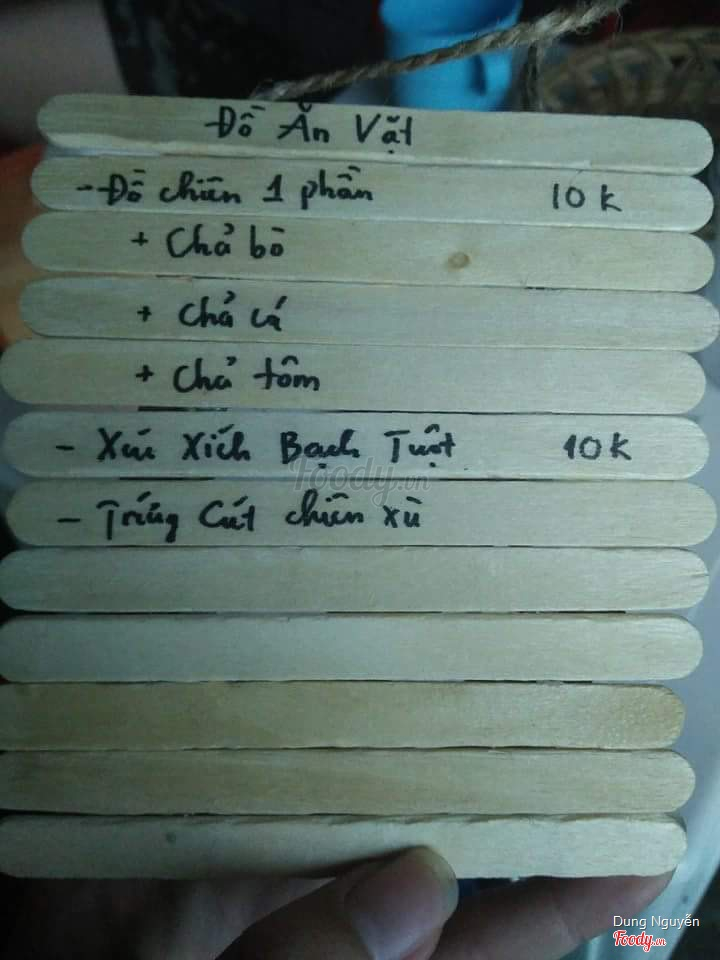 Đồ Ăn Vặt
- Đồ chiên 1 phần 10k
+ Chả bò
+ Chả cá
+ Chả tôm
- Xúc Xích Bạch Tuột 10k
Foody.vn
- Trứng Cút chiên xù
Dung Nguyễn
Foody.vn